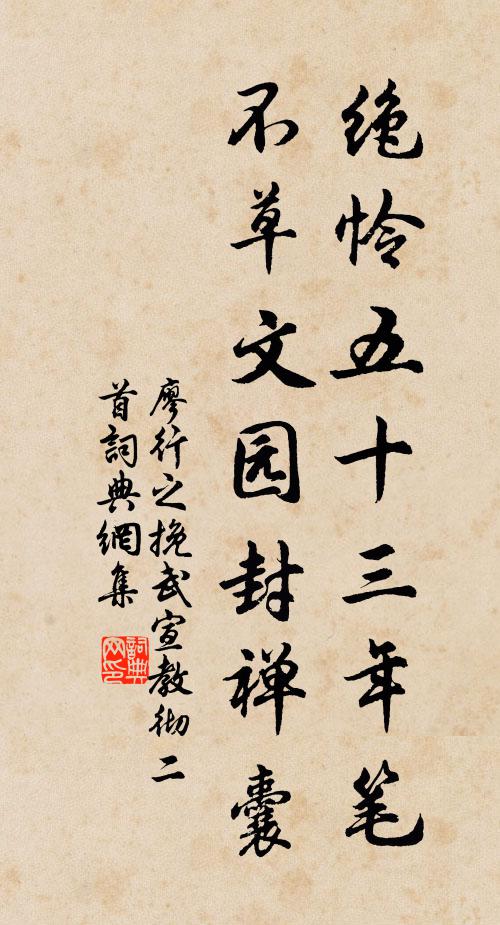 绝怜五十三年笔
不草文园封禅囊
廖行之挽武宣教彻二
首詞典網集
詞典
网印